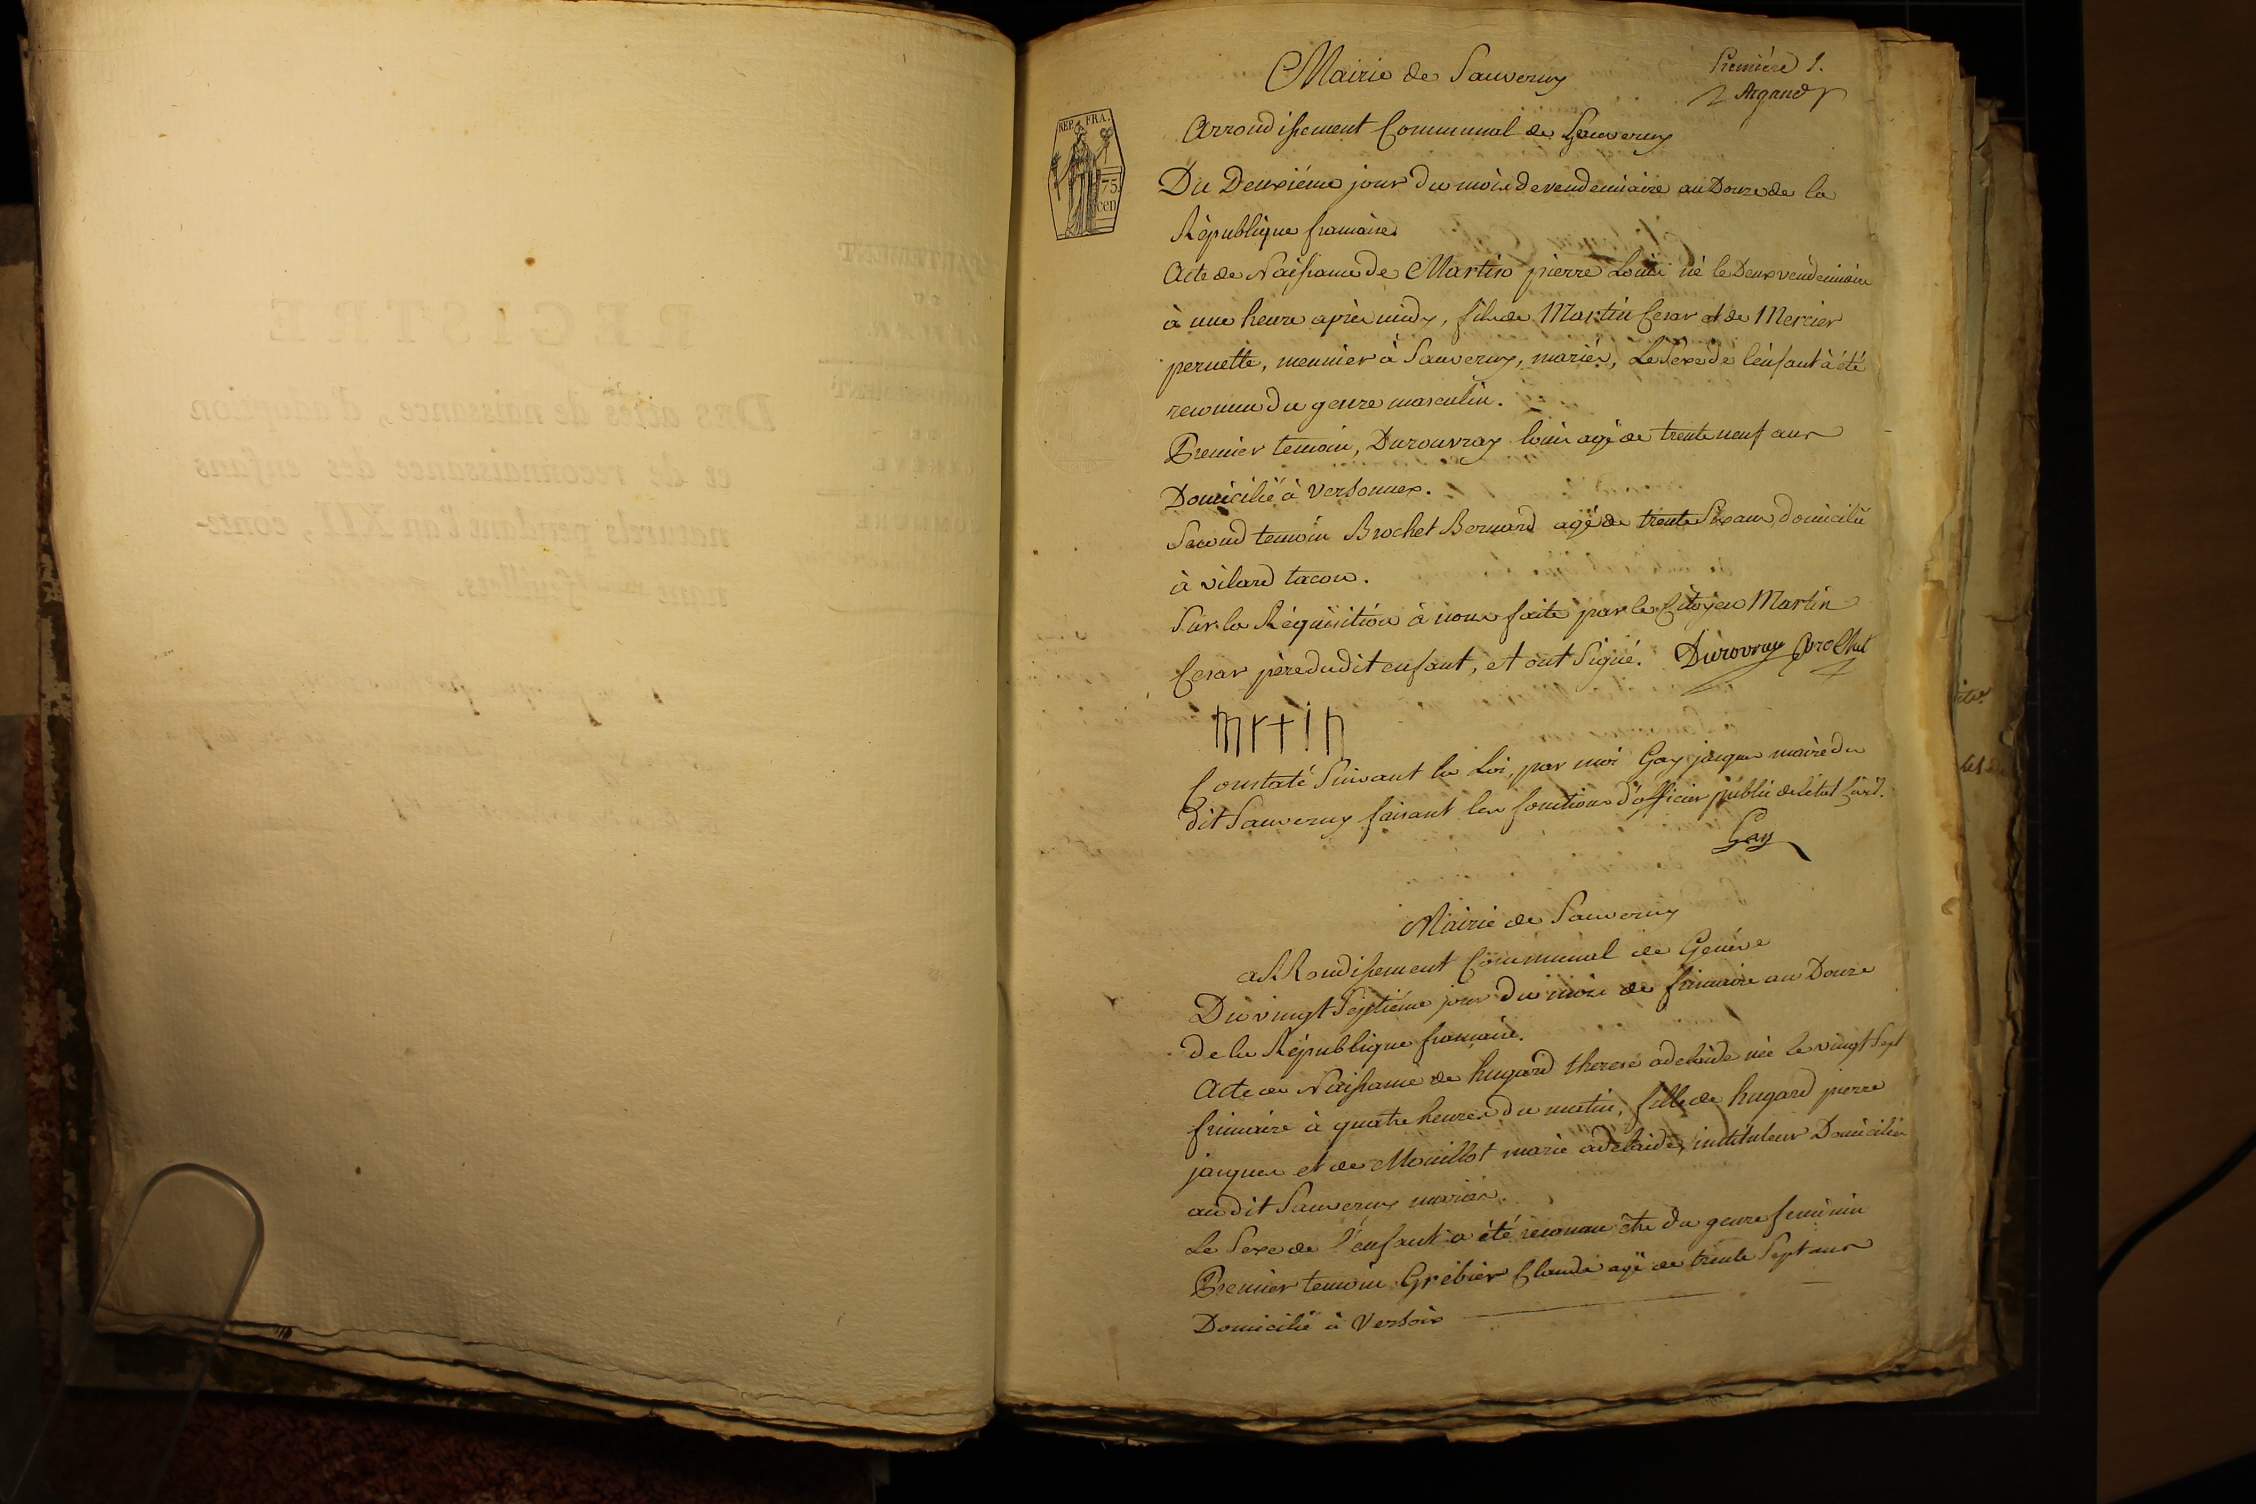 Première 1.
Argand
Mairie de Sauverny
REP. FRA.
75
cen
Arrondissement Communal de Sauverny
Du Deuxiéme jour du mois de vendemiaire an Douze de la
République francaise
Acte de Naissance de Martin pierre Louis né le Deux vendemiaire
à une heure après midy, fils de Martin Cesar et de Mercier
pernette, meunier à Sauverny, mariés, Le sexe de l'enfant à été
reconnu du genre masculin.
Premier temoin, Durouvray louis agé de trente neuf ans
Domicilié à Versonnex.
Second temoin Brochet Bernard agé de trente Six ans, domicilié
à vilard tacon.
Sur la Réquisition à nous faite par le Citoyen Martin
Cesar père du dit enfant, et ont Signé. Durovray Brochet
mrtin
Constaté Suivant la Loi, par moi Gay jacques maire du
dit Sauverny faisant les fonctions d'officier public de l'état Civil.
Gay
Mairie de Sauverny
aRRondissement Communal de Genève
Du vingt Septiéme jour du mois de frimaire an Douze
de la République francaise.
Acte de Naissance de hugard therese adelaide née le vingt Sept
frimaire à quatre heures du matin, fille de hugard pierre
jacques et de Mouillot marie adelaide, instituteur Domicilié
au dit Sauverny mariés.
Le Sexe de l'enfant a été reconnu être du genre feminin
Premier temoin Grebier Claude agé de trente Sept ans
Domicilié à Versoix